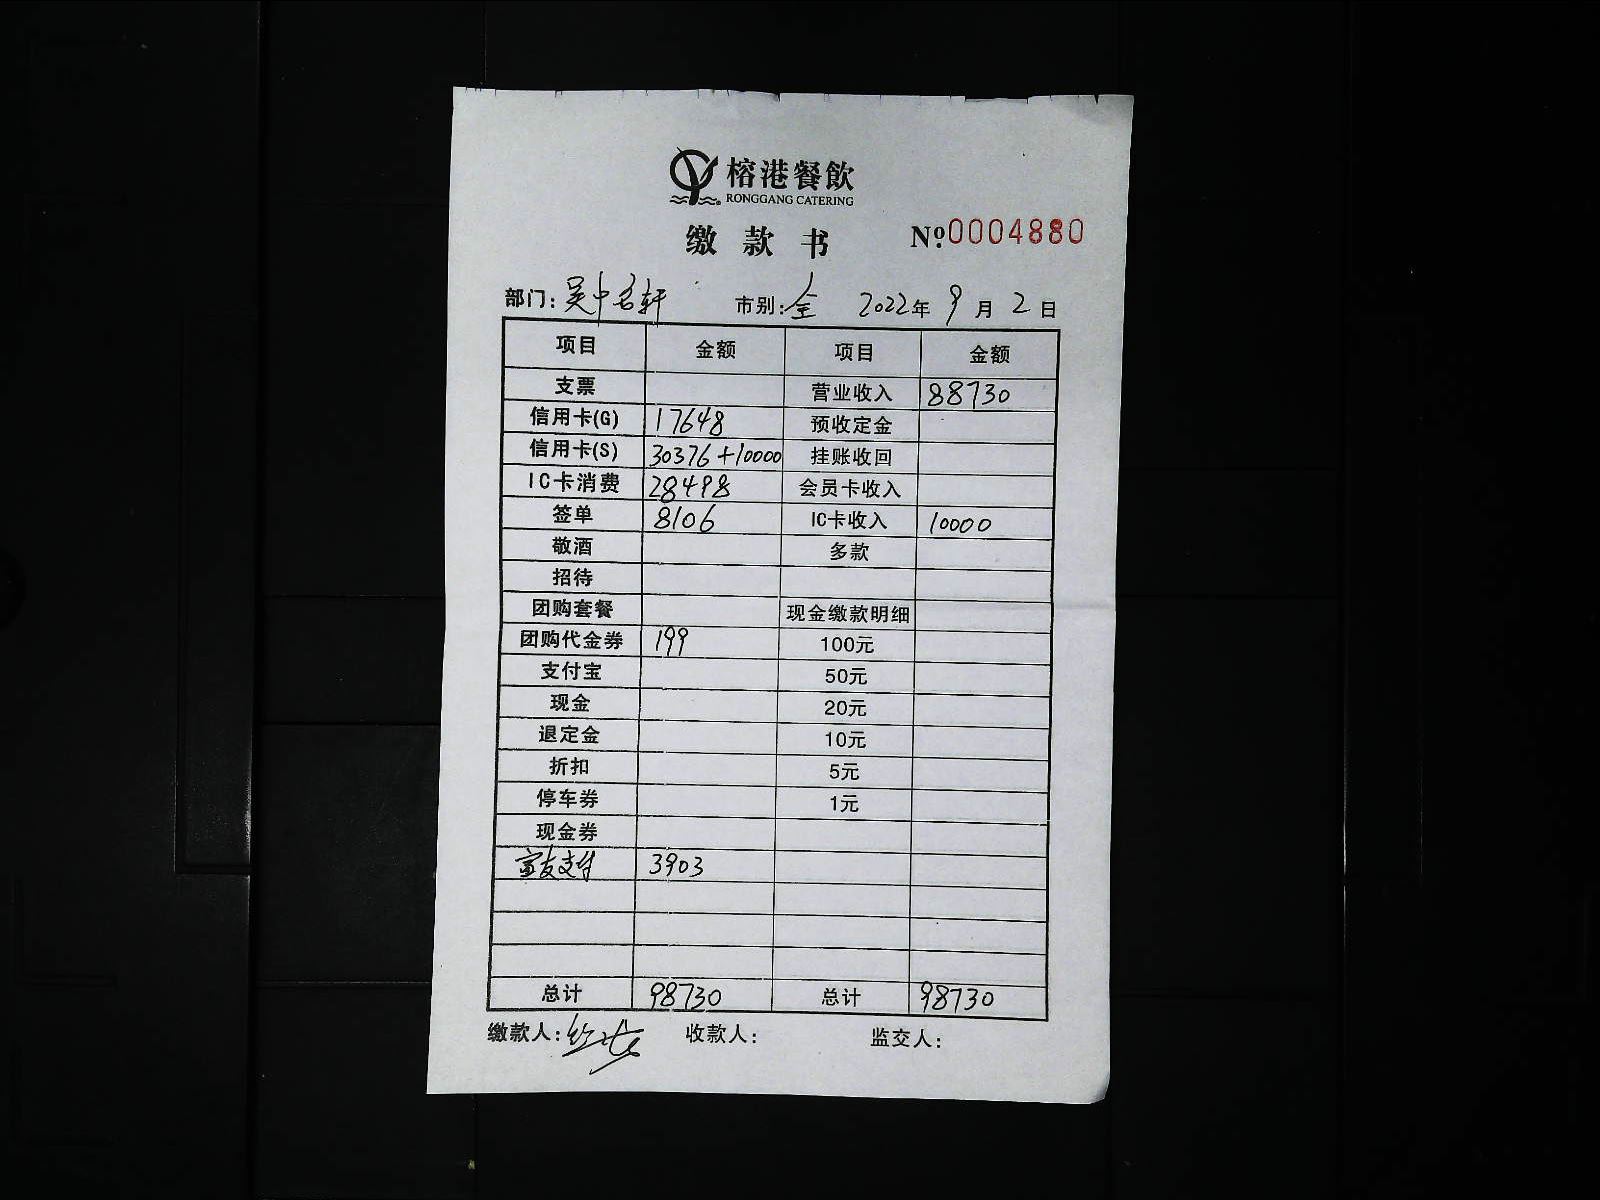 榕港餐飲
RONGGANG CATERING
缴款书 Nº:0004880
部门:吴中名轩 市别:全 2022年9月2日
项目 金额 项目 金额
支票 营业收入 88730
信用卡(G) 17648 预收定金
信用卡(S) 30376+10000 挂账收回
IC卡消费 28498 会员卡收入
签单 8106 IC卡收入 10000
敬酒 多款
招待
团购套餐 现金缴款明细
团购代金券 199 100元
支付宝 50元
现金 20元
退定金 10元
折扣 5元
停车券 1元
现金券
富友支付 3903
总计 98730 总计 98730
缴款人: 收款人: 监交人: